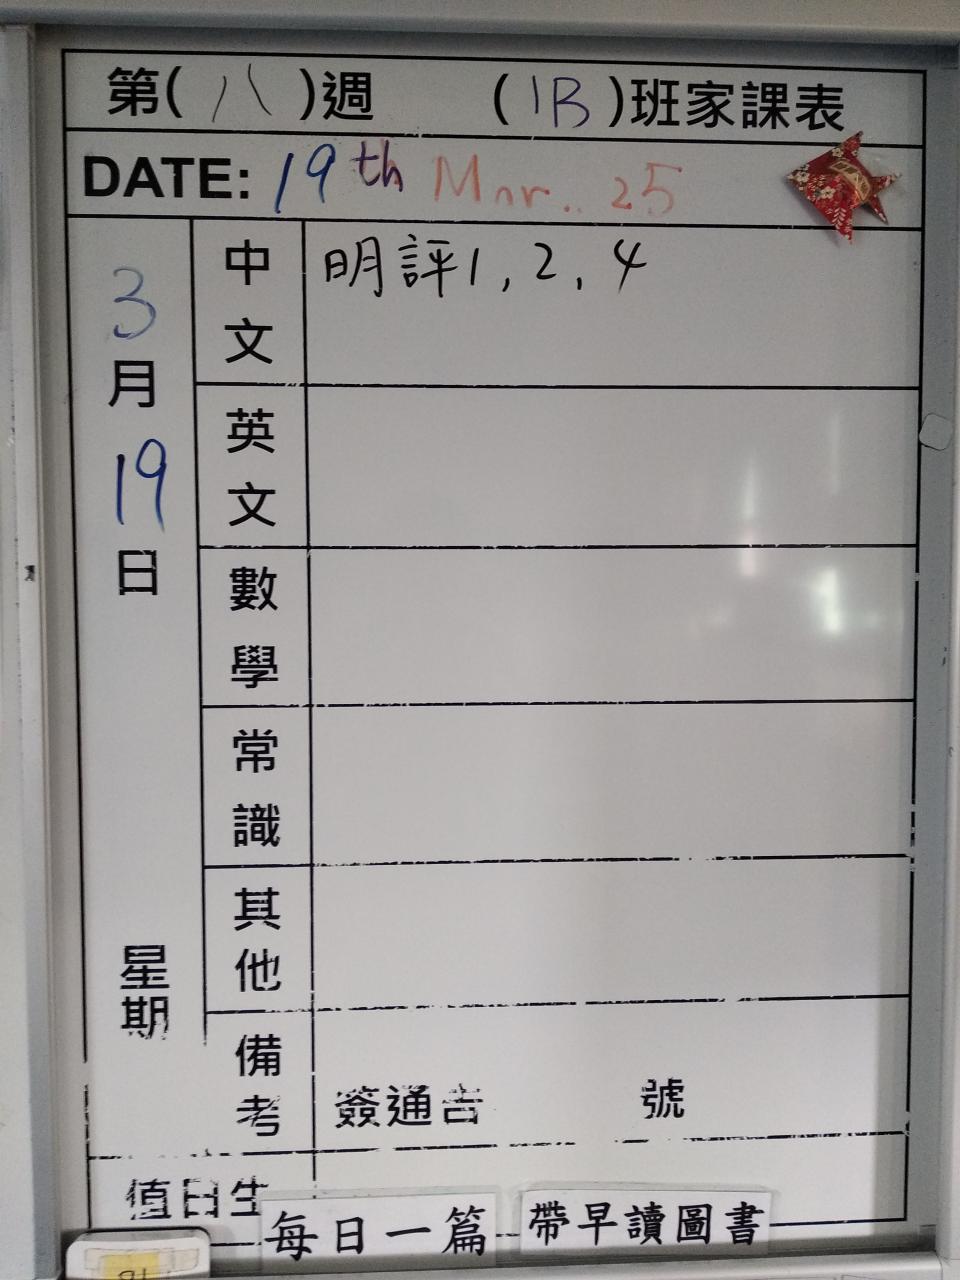 第(八)週 (1B)班家課表
DATE: 19th Mar. 25
3月19日
星期
中文 明評1,2,4
英文
數學
常識
其他
備考 簽通告 號
值日生
每日一篇 帶早讀圖書